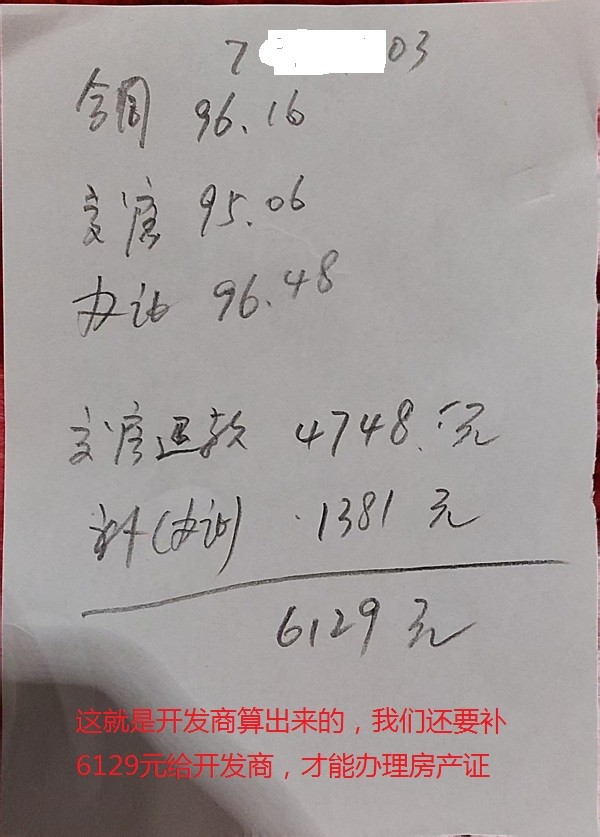 7 03
合同 96.16
交房 95.06
办证 96.48
交房退款 4748.元
补(办证) 1381元
6129元
这就是开发商算出来的，我们还要补
6129元给开发商，才能办理房产证